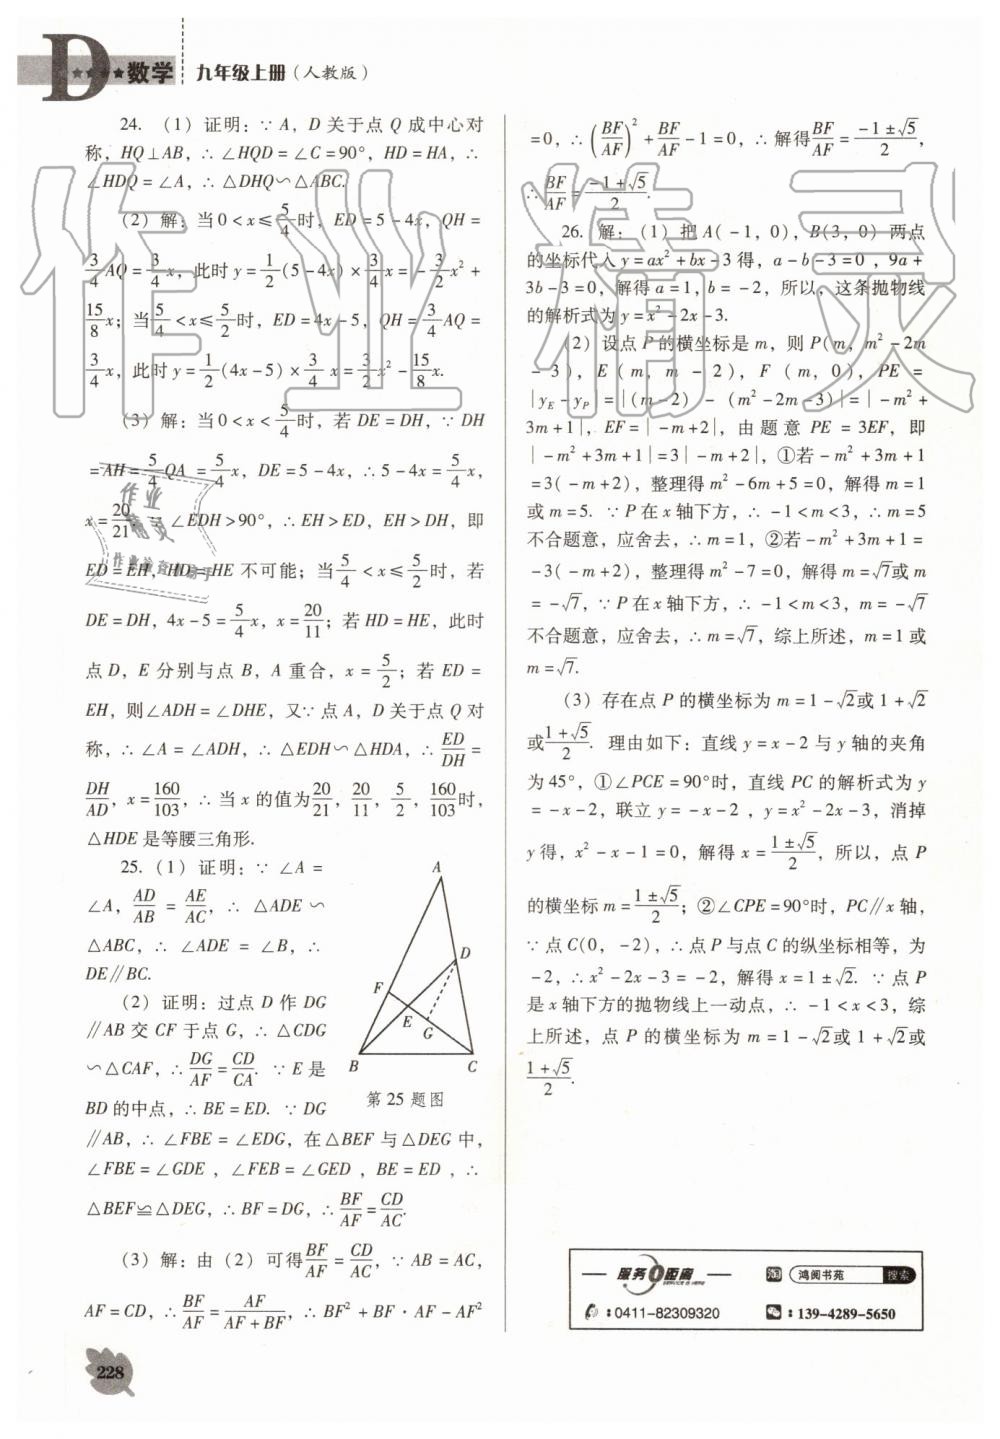 D
★★★★数学 九年级上册(人教版)
24. (1) 证明:∵ A, D 关于点 Q 成中心对
称, HQ⊥AB, ∴ ∠HQD = ∠C = 90°, HD = HA, ∴
∠HDQ = ∠A, ∴ △DHQ∽△ABC.
(2) 解: 当 0 < x ≤ 5/4 时, ED = 5 - 4x, QH =
3/4 AQ = 3/4 x, 此时 y = 1/2 (5 - 4x) × 3/4 x = - 3/2 x² +
15/8 x; 当 5/4 < x ≤ 5/2 时, ED = 4x - 5, QH = 3/4 AQ =
3/4 x, 此时 y = 1/2 (4x - 5) × 3/4 x = 3/2 x² - 15/8 x.
(3) 解: 当 0 < x < 5/4 时, 若 DE = DH, ∵ DH
= AH = 5/4 QA = 5/4 x, DE = 5 - 4x, ∴ 5 - 4x = 5/4 x,
x = 20/21. ∵ ∠EDH > 90°, ∴ EH > ED, EH > DH, 即
ED = EH, HD = HE 不可能; 当 5/4 < x ≤ 5/2 时, 若
DE = DH, 4x - 5 = 5/4 x, x = 20/11; 若 HD = HE, 此时
点 D, E 分别与点 B, A 重合, x = 5/2; 若 ED =
EH, 则∠ADH = ∠DHE, 又∵ 点 A, D 关于点 Q 对
称, ∴ ∠A = ∠ADH, ∴ △EDH∽△HDA, ∴ ED/DH =
DH/AD, x = 160/103, ∴ 当 x 的值为 20/21, 20/11, 5/2, 160/103 时,
△HDE 是等腰三角形.
25. (1) 证明: ∵ ∠A =
∠A, AD/AB = AE/AC, ∴ △ADE∽
△ABC, ∴ ∠ADE = ∠B, ∴
DE∥BC.
(2) 证明: 过点 D 作 DG
∥AB 交 CF 于点 G, ∴ △CDG
∽△CAF, ∴ DG/AF = CD/CA. ∵ E 是
BD 的中点, ∴ BE = ED. ∵ DG
∥AB, ∴ ∠FBE = ∠EDG, 在△BEF 与△DEG 中,
∠FBE = ∠GDE, ∠FEB = ∠GED, BE = ED, ∴
△BEF≌△DEG, ∴ BF = DG, ∴ BF/AF = CD/AC.
(3) 解: 由 (2) 可得 BF/AF = CD/AC, ∵ AB = AC,
AF = CD, ∴ BF/AF = AF/(AF + BF), ∴ BF² + BF · AF - AF²
A
D
F
E
G
B
C
第 25 题图
= 0, ∴ (BF/AF)² + BF/AF - 1 = 0, ∴ 解得 BF/AF = (-1 ± √5)/2,
∴ BF/AF = (-1 + √5)/2.
26. 解: (1) 把 A(-1, 0), B(3, 0) 两点
的坐标代入 y = ax² + bx - 3 得, a - b - 3 = 0, 9a +
3b - 3 = 0, 解得 a = 1, b = -2, 所以, 这条抛物线
的解析式为 y = x² - 2x - 3.
(2) 设点 P 的横坐标是 m, 则 P(m, m² - 2m
- 3), E (m, m - 2), F (m, 0), PE =
|y_E - y_P| = |(m - 2) - (m² - 2m - 3)| = | - m² +
3m + 1|, EF = | - m + 2|, 由题意 PE = 3EF, 即
| - m² + 3m + 1| = 3| - m + 2|, ①若 - m² + 3m + 1
= 3( - m + 2), 整理得 m² - 6m + 5 = 0, 解得 m = 1
或 m = 5. ∵ P 在 x 轴下方, ∴ -1 < m < 3, ∴ m = 5
不合题意, 应舍去, ∴ m = 1, ②若 - m² + 3m + 1 =
-3( - m + 2), 整理得 m² - 7 = 0, 解得 m = √7 或 m
= - √7, ∵ P 在 x 轴下方, ∴ -1 < m < 3, m = - √7
不合题意, 应舍去, ∴ m = √7, 综上所述, m = 1 或
m = √7.
(3) 存在点 P 的横坐标为 m = 1 - √2 或 1 + √2
或 (1 + √5)/2. 理由如下: 直线 y = x - 2 与 y 轴的夹角
为 45°, ①∠PCE = 90°时, 直线 PC 的解析式为 y
= - x - 2, 联立 y = - x - 2, y = x² - 2x - 3, 消掉
y 得, x² - x - 1 = 0, 解得 x = (1 ± √5)/2, 所以, 点 P
的横坐标 m = (1 ± √5)/2; ②∠CPE = 90°时, PC∥x 轴,
∵ 点 C(0, -2), ∴ 点 P 与点 C 的纵坐标相等, 为
-2, ∴ x² - 2x - 3 = -2, 解得 x = 1 ± √2. ∵ 点 P
是 x 轴下方的抛物线上一动点, ∴ -1 < x < 3, 综
上所述, 点 P 的横坐标为 m = 1 - √2 或 1 + √2 或
(1 + √5)/2.
服务0距离
SERVICE IS HERE
淘 鸿阅书苑 搜索
: 0411-82309320
: 139-4289-5650
228
作业精灵
作业
精灵